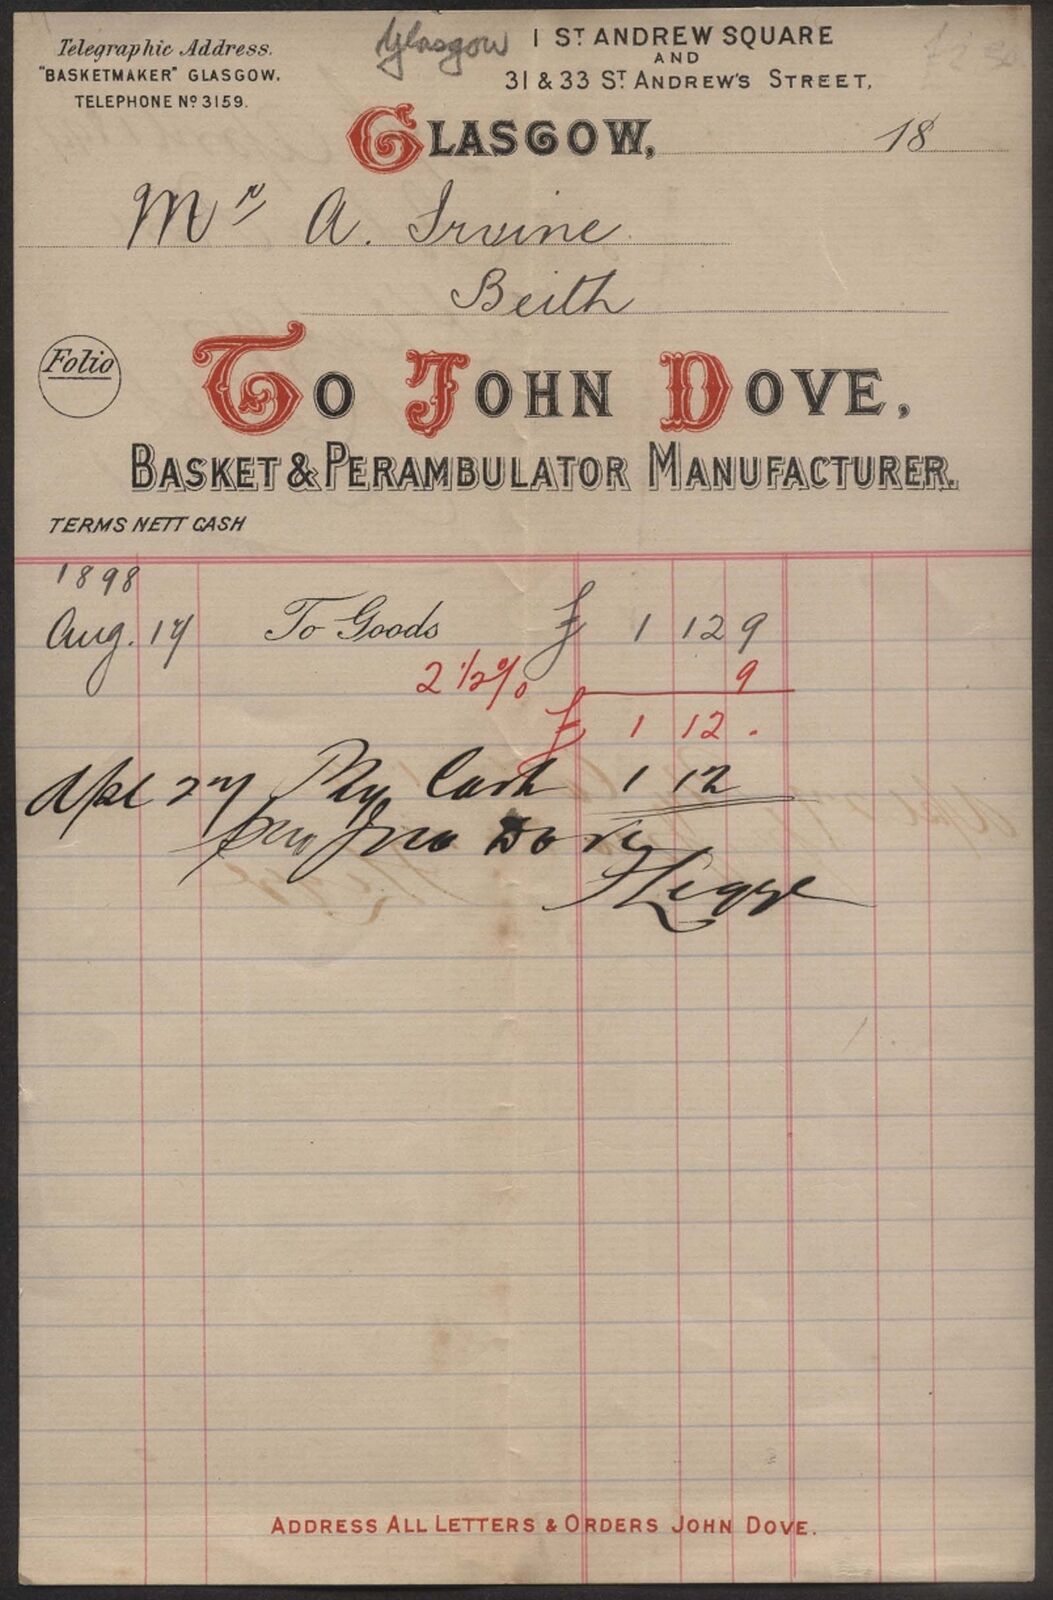 Telegraphic Address.
"BASKETMAKER" GLASGOW.
TELEPHONE No 3159.
Glasgow
1 ST ANDREW SQUARE
AND
31 & 33 ST. ANDREW'S STREET,
GLASGOW, 18
Mr A. Irvine
Beith
Folio
TO JOHN DOVE,
BASKET & PERAMBULATOR MANUFACTURER.
TERMS NETT CASH
1898
Aug. 17 To Goods £ 1 12 9
2 1/2 % 9
£ 1 12 .
27 By Cash 1 12
Jno Dove
Legge
ADDRESS ALL LETTERS & ORDERS JOHN DOVE.